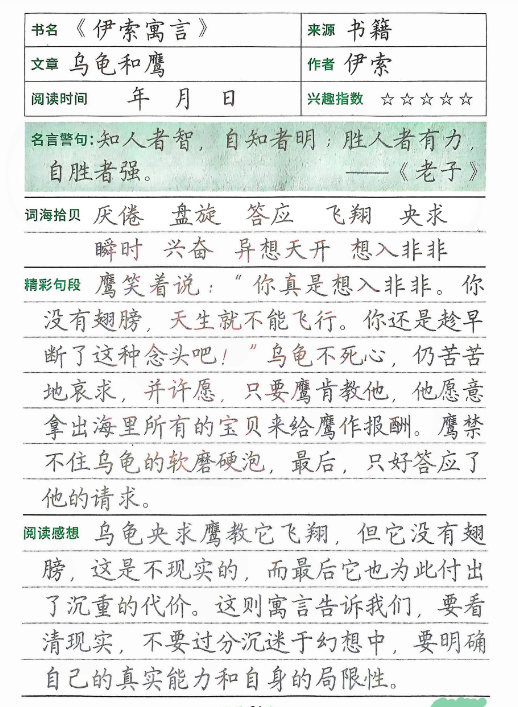 书名 《伊索寓言》 来源 书籍
文章 乌龟和鹰 作者 伊索
阅读时间 年 月 日 兴趣指数 ☆☆☆☆☆
名言警句:知人者智，自知者明；胜人者有力，
自胜者强。 ——《老子》
词海拾贝 厌倦 盘旋 答应 飞翔 央求
瞬时 兴奋 异想天开 想入非非
精彩句段 鹰笑着说：“你真是想入非非。你
没有翅膀，天生就不能飞行。你还是趁早
断了这种念头吧！”乌龟不死心，仍苦苦
地哀求，并许愿，只要鹰肯教他，他愿意
拿出海里所有的宝贝来给鹰作报酬。鹰禁
不住乌龟的软磨硬泡，最后，只好答应了
他的请求。
阅读感想 乌龟央求鹰教它飞翔，但它没有翅
膀，这是不现实的，而最后它也为此付出
了沉重的代价。这则寓言告诉我们，要看
清现实，不要过分沉迷于幻想中，要明确
自己的真实能力和自身的局限性。